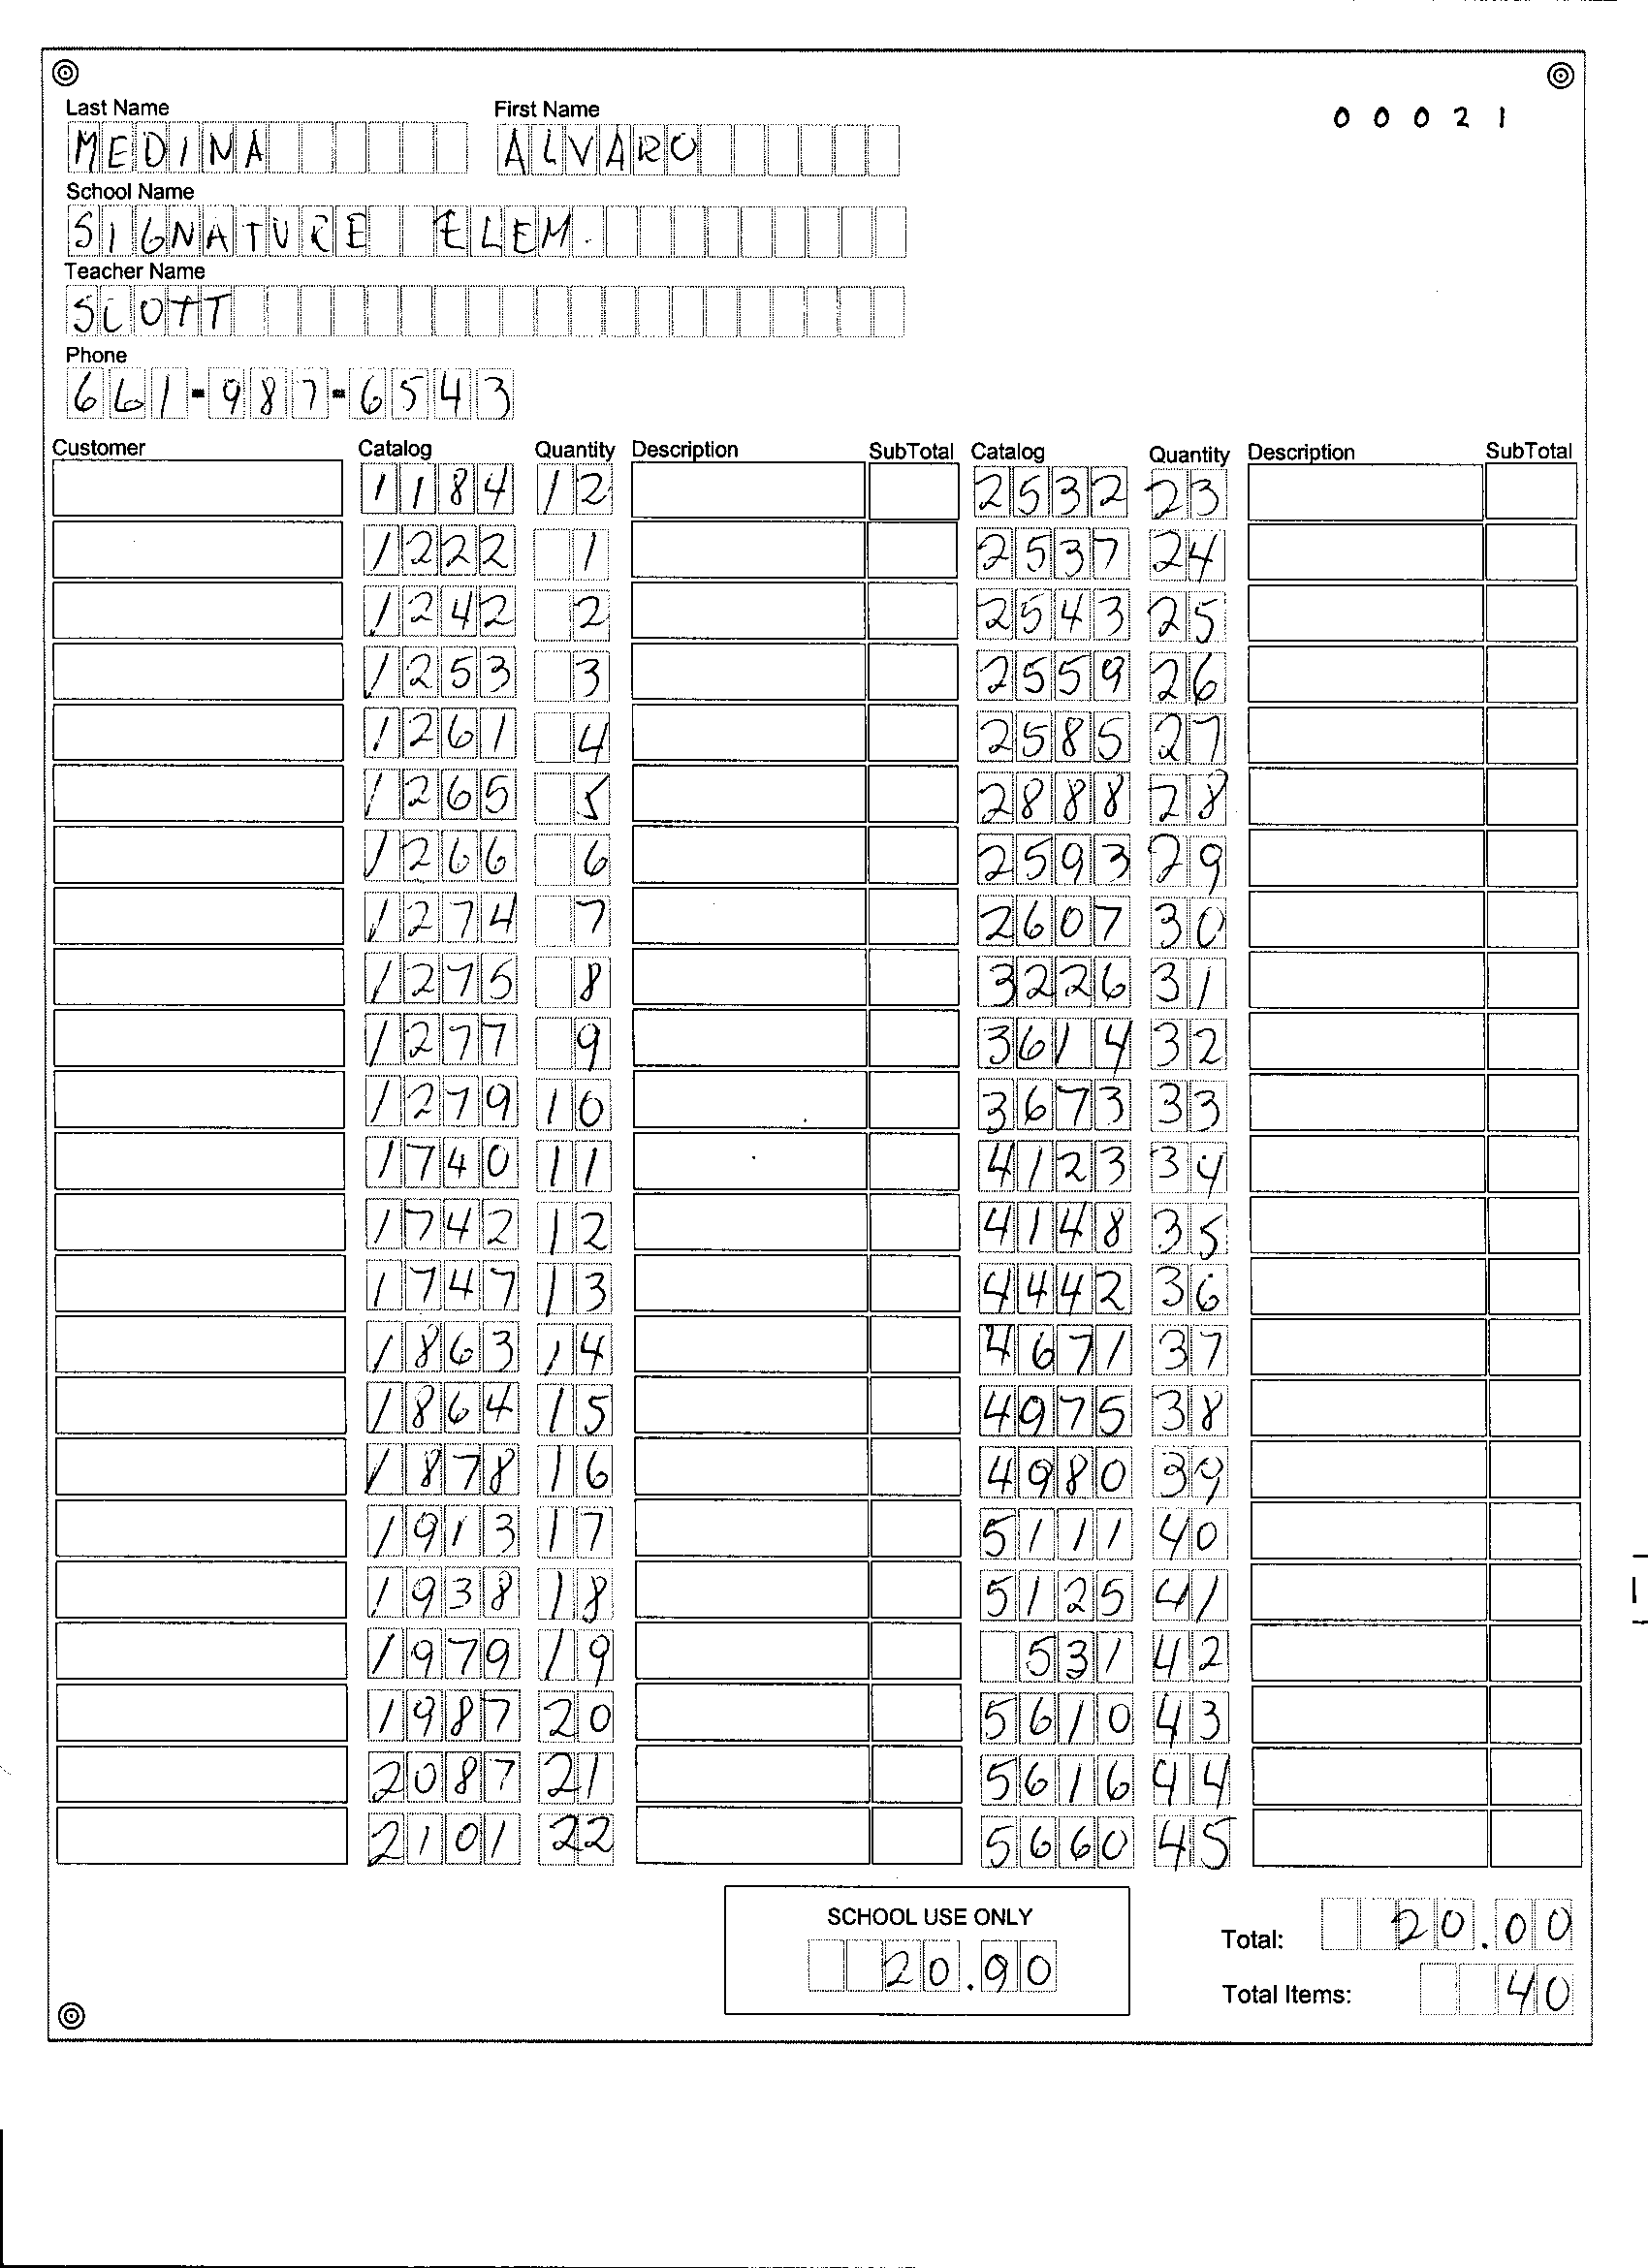 Last Name First Name 0 0 0 2 1
MEDINA ALVARO
School Name
SIGNATURE ELEM.
Teacher Name
SCOTT
Phone
661-987-6543
Customer Catalog Quantity Description SubTotal Catalog Quantity Description SubTotal
1184 12 2532 23
1222 1 2537 24
1242 2 2543 25
1253 3 2559 26
1261 4 2585 27
1265 5 2888 28
1266 6 2593 29
1274 7 2607 30
1275 8 3226 31
1277 9 3614 32
1279 10 3673 33
1740 11 4123 34
1742 12 4148 35
1747 13 4442 36
1863 14 4671 37
1864 15 4975 38
1878 16 4980 39
1913 17 5111 40
1938 18 5125 41
1979 19 531 42
1987 20 5610 43
2087 21 5616 44
2101 22 5660 45
SCHOOL USE ONLY
20.90
Total: 20.00
Total Items: 40